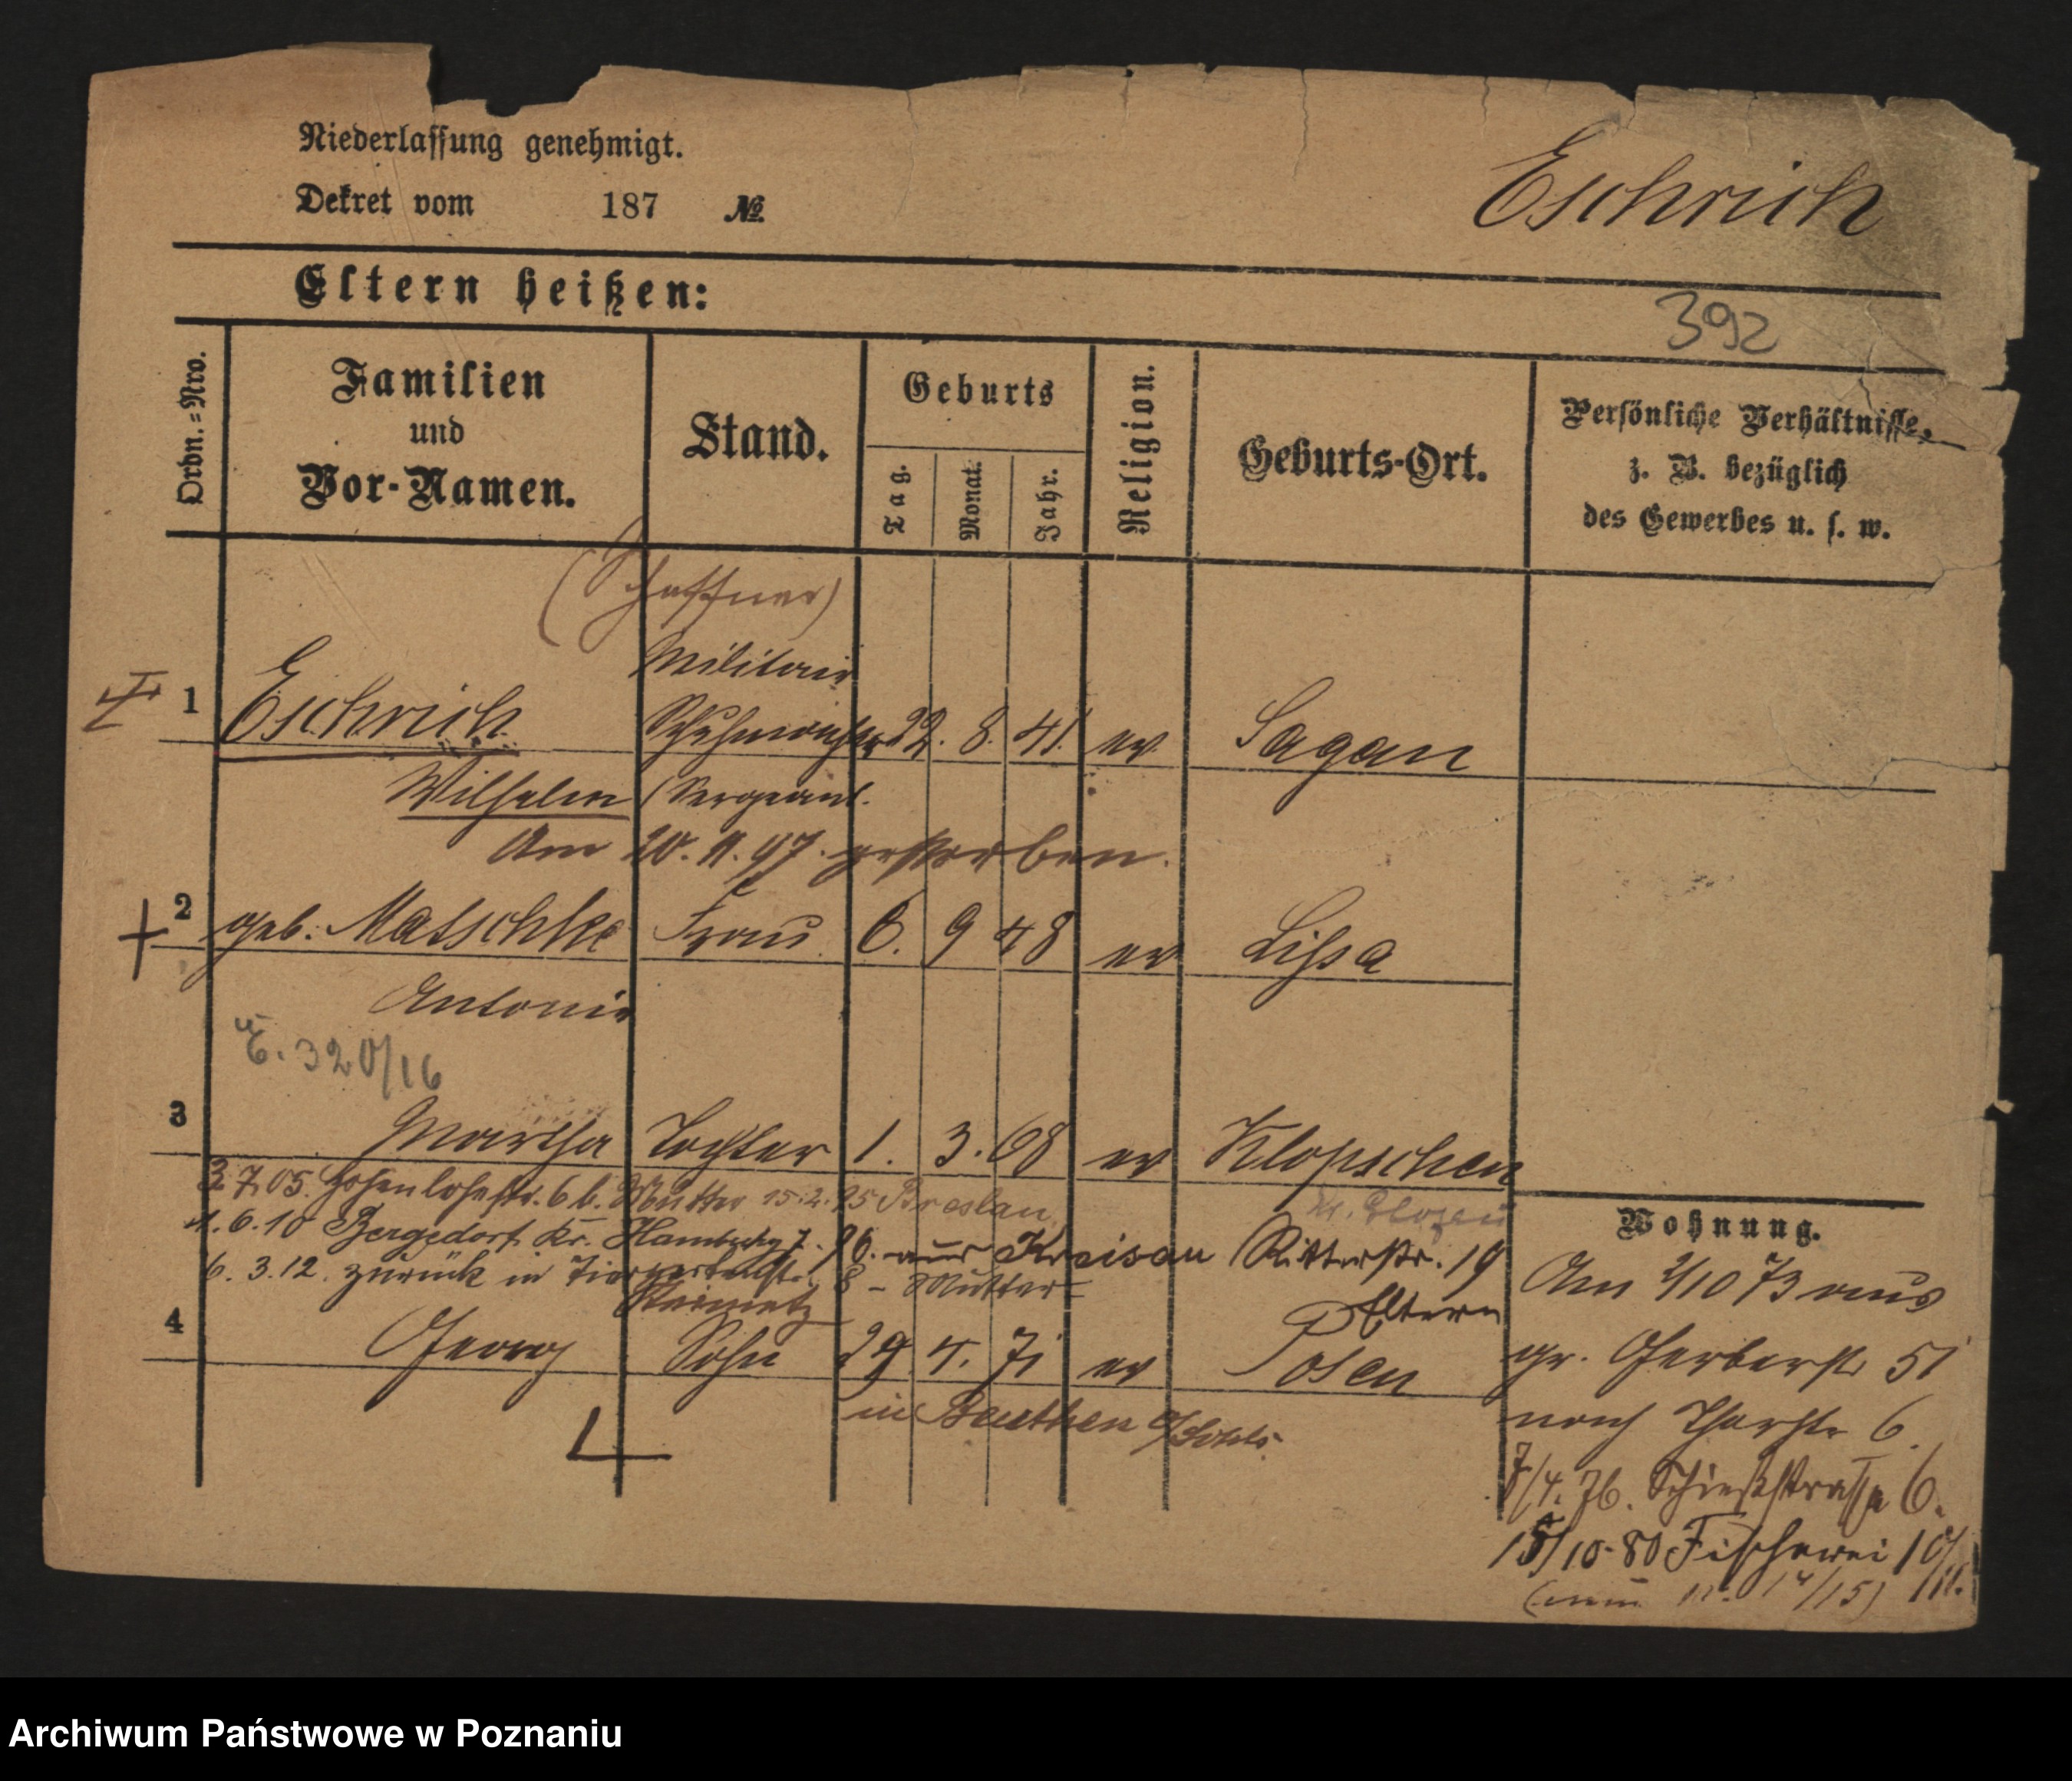 Niederlassung genehmigt.
Dekret vom 187 №
Eschrich
Eltern heißen:
392
Ordn.=Nro.
Familien
und
Vor-Namen.
Stand.
Geburts
Tag.
Monat.
Jahr.
Religion.
Geburts-Ort.
Persönliche Verhältnisse,
z. B. bezüglich
des Gewerbes u. s. w.
(Schaffner)
Militair
1 Eschrich Schuhmacher 22. 8. 41. ev Sagan
Wilhelm (Sergeant.
Am 20. 11. 97. gestorben.
2 geb. Matschke Frau 6. 9 48 ev Lissa
Antonie
E. 320/16
3 Martha Tochter 1. 3. 68 ev Klopschen
Kr. Glogau
3.7.05. Hohenlohestr. 6 b. Mutter 15.2.95 Breslau
1.6.10 Bergedorf Kr. Hamburg 7. 96. aus Kreisau Ritterstr. 19
6.3.12. zurück in Tiergartenstr. 8 - Mutter
Eltern
4 Georg Sohn 29 4. 71 ev Posen
in Beuthen O/Schls.
Wohnung.
Am 2/10 73 aus
gr. Gerberstr 51
nach 6.
7/4. 76. Schießstraße 6.
15/10-80 Fischerei 10/11.
(nun 14/15)
Archiwum Państwowe w Poznaniu